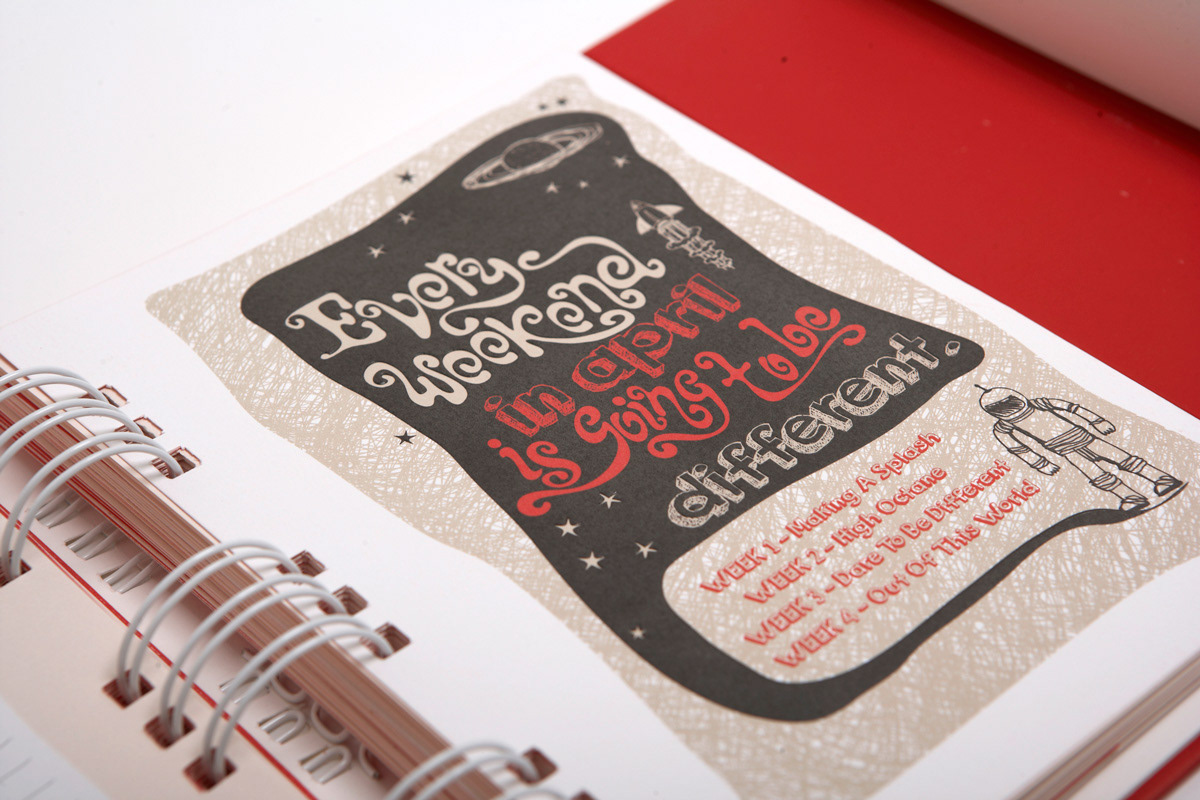 Every
weekend
in april
is going to be
different.
WEEK 1 - Making A Splash
WEEK 2 - High Octane
WEEK 3 - Dare To Be Different
WEEK 4 - Out Of This World